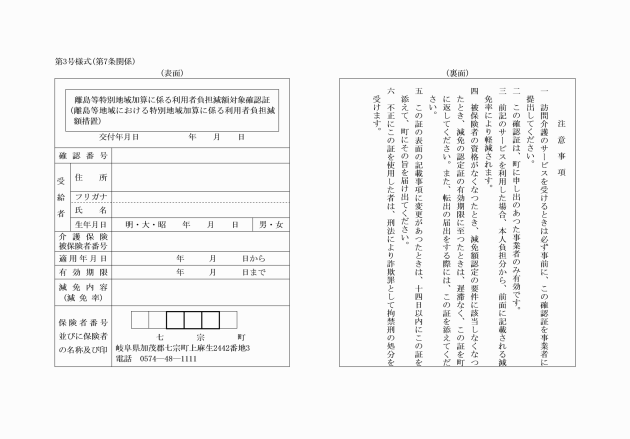 第3号様式(第7条関係)
(表面)
離島等特別地域加算に係る利用者負担減額対象確認証
(離島等地域における特別地域加算に係る利用者負担減
額措置)
交付年月日　　　年　　月　　日
確認番号
受給者
住所
フリガナ
氏名
生年月日　明・大・昭　　年　　月　　日　男・女
介護保険
被保険者番号
適用年月日　　　年　　月　　日から
有効期限　　　年　　月　　日まで
減免内容
(減免率)
保険者番号
並びに保険者
の名称及び印
七　宗　町
岐阜県加茂郡七宗町上麻生2442番地3
電話　0574―48―1111
(裏面)
注意事項
一　訪問介護のサービスを受けるときは必ず事前に、この確認証を事業者に
提出してください。
二　この確認証は、町に申し出のあつた事業者のみ有効です。
三　前記のサービスを利用した場合、本人負担分から、前面に記載される減
免率により軽減されます。
四　被保険者の資格がなくなつたとき、減免額認定の要件に該当しなくなつ
たとき、減免の認定証の有効期限に至つたときは、遅滞なく、この証を町
に返してください。また、転出の届出をする際には、この証を添えてくだ
さい。
五　この証の表面の記載事項に変更があつたときは、十四日以内にこの証を
添えて、町にその旨を届け出てください。
六　不正にこの証を使用した者は、刑法により詐欺罪として拘禁刑の処分を
受けます。